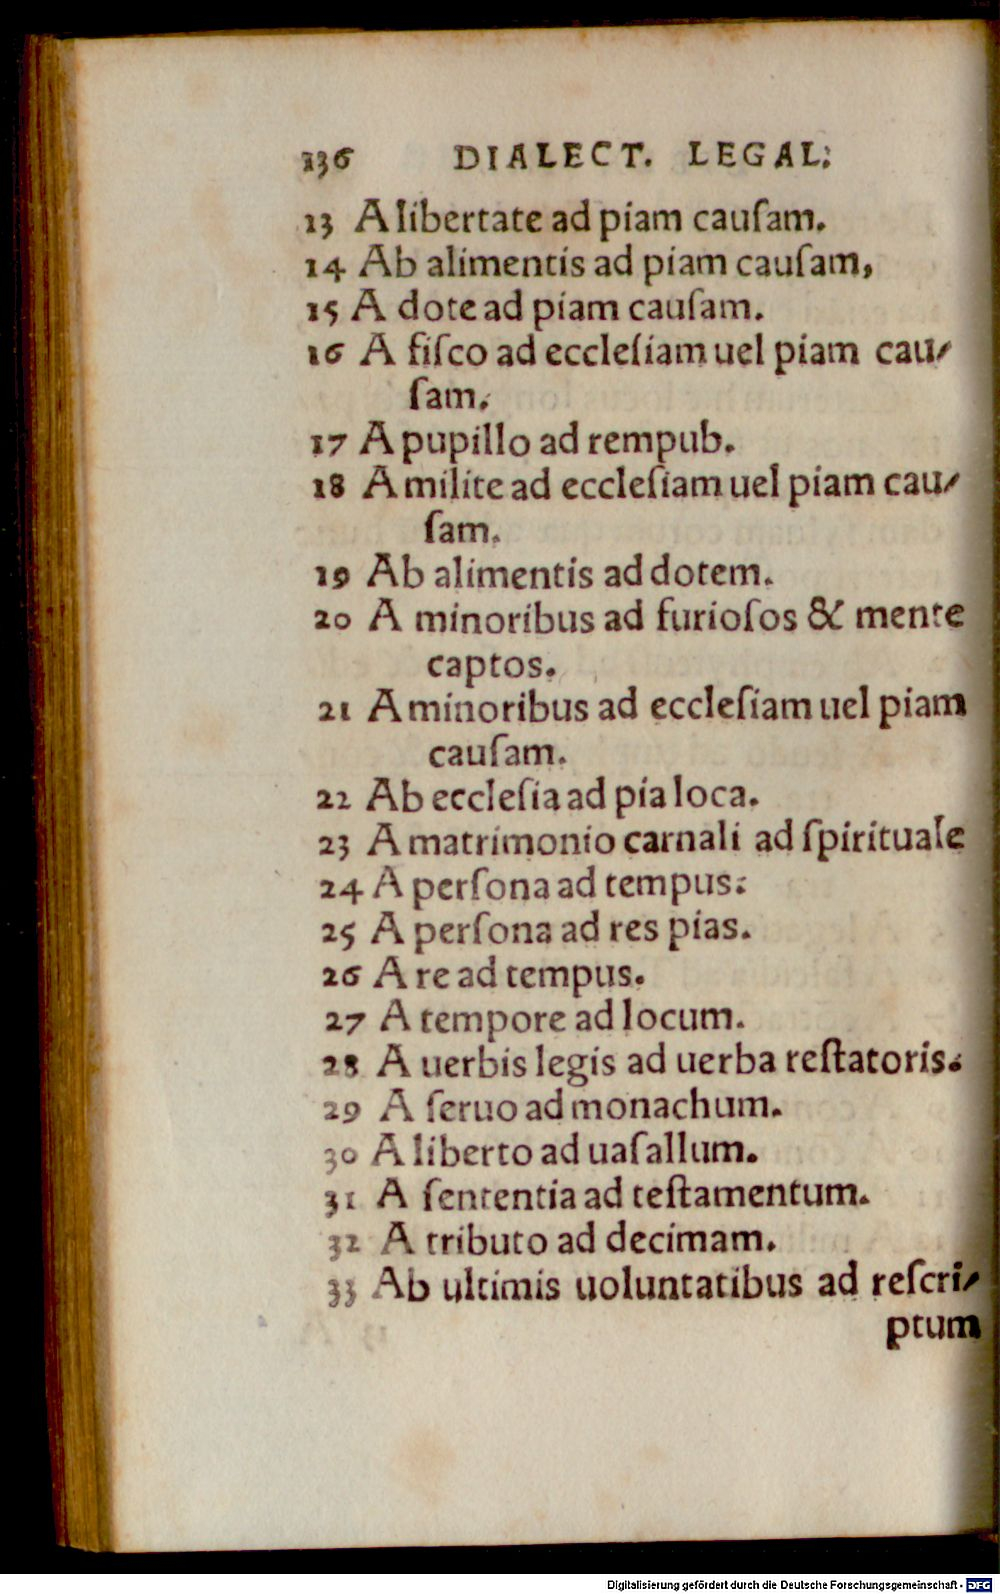 136 DIALECT. LEGAL.
13 A libertate ad piam cauſam.
14 Ab alimentis ad piam cauſam,
15 A dote ad piam cauſam.
16 A fiſco ad eccleſiam uel piam cau-
ſam.
17 A pupillo ad rempub.
18 A milite ad eccleſiam uel piam cau-
ſam.
19 Ab alimentis ad dotem.
20 A minoribus ad furioſos & mente
captos.
21 A minoribus ad eccleſiam uel piam
cauſam.
22 Ab eccleſia ad pia loca.
23 A matrimonio carnali ad ſpirituale
24 A perſona ad tempus.
25 A perſona ad res pias.
26 A re ad tempus.
27 A tempore ad locum.
28 A uerbis legis ad uerba teſtatoris.
29 A ſeruo ad monachum.
30 A liberto ad uaſallum.
31 A ſententia ad teſtamentum.
32 A tributo ad decimam.
33 Ab ultimis uoluntatibus ad reſcri-
ptum
Digitalisierung gefördert durch die Deutsche Forschungsgemeinschaft - DFG